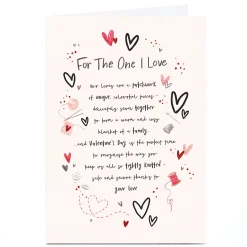 For The One I Love
Our lives are a patchwork
of unique, colourful pieces
delicately sewn together
to form a warm and cosy
blanket of a family...
and Valentine's Day is the perfect time
to recognise the way you
keep us all so tightly knitted -
safe and secure thanks to
your love